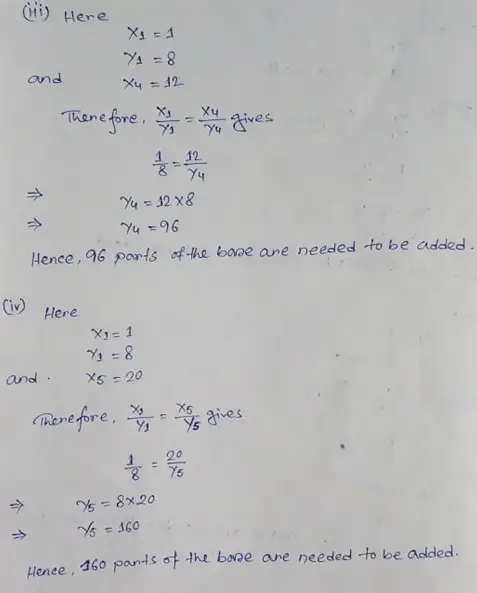 (iii) Here
x₁ = 1
y₁ = 8
and x₄ = 12
Therefore, x₁/y₁ = x₄/y₄ gives
1/8 = 12/y₄
⇒ y₄ = 12×8
⇒ y₄ = 96
Hence, 96 parts of the base are needed to be added.
(iv) Here
x₁ = 1
y₁ = 8
and. x₅ = 20
Therefore, x₁/y₁ = x₅/y₅ gives
1/8 = 20/y₅
⇒ y₅ = 8×20
⇒ y₅ = 160
Hence, 160 parts of the base are needed to be added.